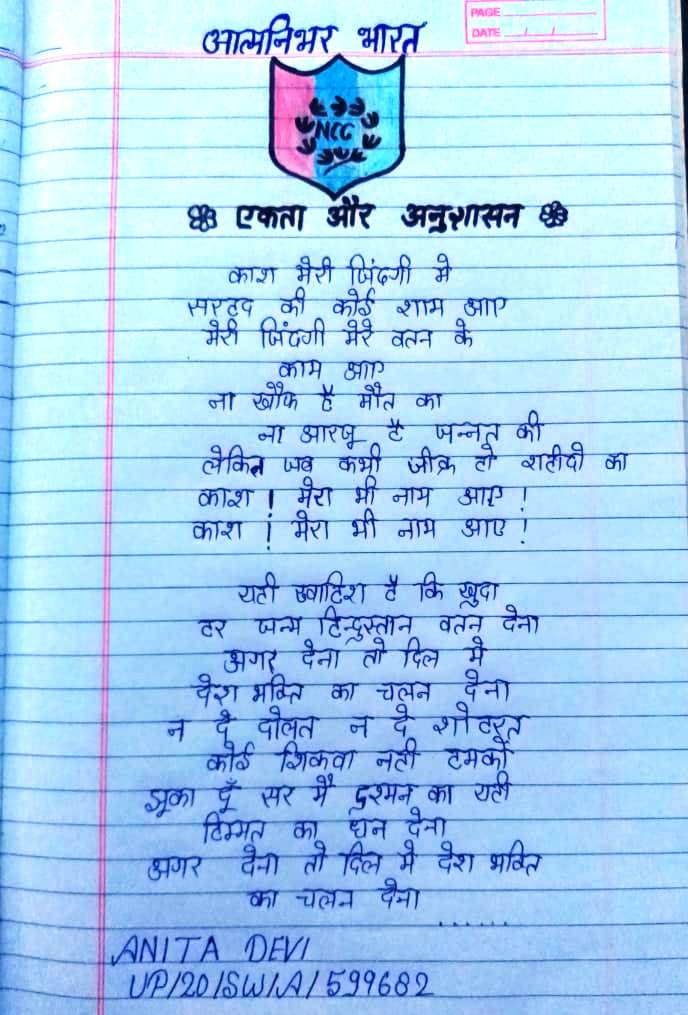 PAGE
DATE / /
आत्मनिभर भारत
NCC
एकता और अनुशासन
काश मेरी जिंदगी मे
सरहद की कोई शाम आए
मेरी जिंदगी मेरे वतन के
काम आए
ना खौफ है मौत का
ना आरजू है जन्नत की
लेकिन जब कभी जीक्र हो शहीदो का
काश ! मेरा भी नाम आए !
काश ! मेरा भी नाम आए !
यही ख्वाहिश है कि खुदा
हर जन्म हिन्दुस्तान वतन देना
अगर देना तो दिल मे
देश भक्ति का चलन देना
न दे दोलत न दे शोहरत
कोई शिकवा नही हमको
झूका दूँ सर मै दुश्मन का यही
हिम्मत का धन देना
अगर देना तो दिल मे देश भक्ति
का चलन देना
......
ANITA DEVI
UP/20/SW/A/599682